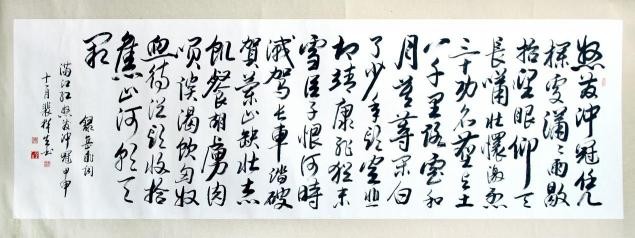 怒发冲冠凭
栏处潇潇雨歇
抬望眼仰天
长啸壮怀激烈
三十功名尘与土
八千里路云和
月莫等闲白
了少年头空悲
切靖康耻犹未
雪臣子恨何时
灭驾长车踏破
贺兰山缺壮志
饥餐胡虏肉
笑谈渴饮匈奴
血待从头收拾
旧山河朝天
阙
录岳飞词
满江红怒发冲冠甲申